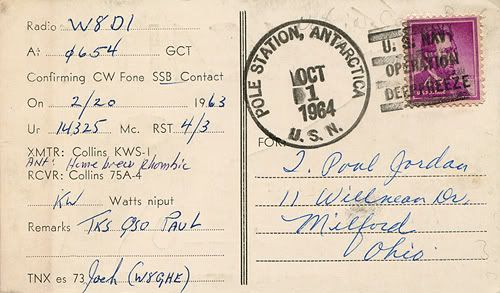 Radio W8DI
At 0654 GCT
Confirming CW Fone SSB Contact
On 2/20 1963
Ur 14325 Mc. RST 4/3
XMTR: Collins KWS-1
ANT: Homebrew Rhombic
RCVR: Collins 75A-4
KW Watts niput
Remarks TKS QSO PAUL
TNX es 73, Jack (W8GHE)
POLE STATION, ANTARCTICA
OCT
1
1964
U.S.N.
U. S. NAVY
OPERATION
DEEP FREEZE
FOR:
J. Paul Jordan
11 Willnean Dr.
Milford
Ohio